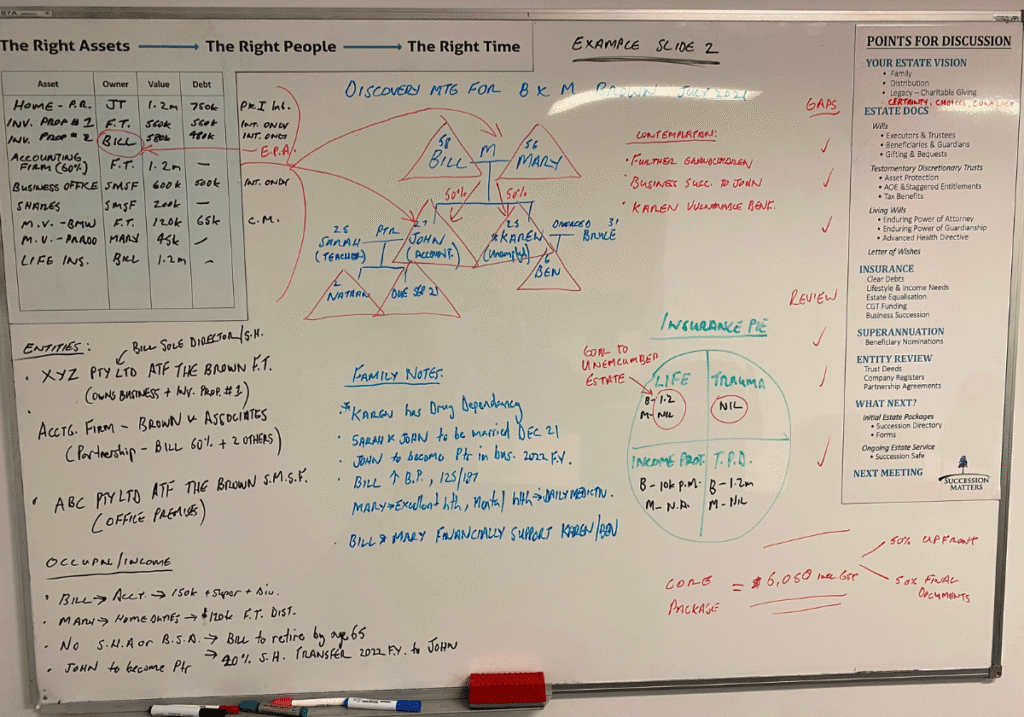 The Right Assets The Right People The Right Time
EXAMPLE SLIDE 2
DISCOVERY MTG FOR B & M BROWN JULY 2021
Asset Owner Value Debt
HOME - P.R. JT 1.2m 750k P & I Int.
INV. PROP # 1 F.T. 560k 560k INT. ONLY
INV. PROP # 2 BILL 580k 480k INT. ONLY
E.P.A.
ACCOUNTING
FIRM (60%) F.T. 1.2m -
BUSINESS OFFICE SMSF 600k 500k INT. ONLY
SHARES SMSF 200k -
M.V. - BMW F.T. 120k 65k C.M.
M.V. - PRADO MARY 45k -
LIFE INS. BILL 1.2m -
58
BILL
M
56
MARY
50% 50%
25
SARAH
(TEACHER)
PTR
27
JOHN
(ACCOUNT.)
25
*KAREN
(Unemployed)
DIVORCED 31
BRUCE
2
NATHAN
DUE SEP 21
6
BEN
CONTEMPLATION:
• FURTHER GRANDCHILDREN
• BUSINESS SUCC. TO JOHN
• KAREN VULNERABLE BENF.
GAPS
REVIEW
POINTS FOR DISCUSSION
YOUR ESTATE VISION
• Family
• Distribution
• Legacy – Charitable Giving
CERTAINTY, CHOICES, CONFLICT
ESTATE DOCS
Wills
• Executors & Trustees
• Beneficiaries & Guardians
• Gifting & Bequests
Testamentary Discretionary Trusts
• Asset Protection
• AOE & Staggered Entitlements
• Tax Benefits
Living Wills
• Enduring Power of Attorney
• Enduring Power of Guardianship
• Advanced Health Directive
Letter of Wishes
INSURANCE
Clear Debts
Lifestyle & Income Needs
Estate Equalisation
CGT Funding
Business Succession
SUPERANNUATION
Beneficiary Nominations
ENTITY REVIEW
Trust Deeds
Company Registers
Partnership Agreements
WHAT NEXT?
Initial Estate Packages
• Succession Directory
• Forms
Ongoing Estate Service
• Succession Safe
NEXT MEETING
SUCCESSION
MATTERS
ENTITIES:
BILL SOLE DIRECTOR/S.H.
• XYZ PTY LTD ATF THE BROWN F.T.
(OWNS BUSINESS + INV. PROP. # 1)
• ACCTG. FIRM - BROWN & ASSOCIATES
(Partnership - BILL 60% + 2 OTHERS)
• ABC PTY LTD ATF THE BROWN S.M.S.F.
(OFFICE PREMISES)
OCCUPN/INCOME
• BILL → ACCT. → 150k + Super + Div.
• MARY → HOME DUTIES → $120k F.T. DIST.
• NO S.H.A OR B.S.A. → BILL to retire by age 65
→ 40% S.H. TRANSFER 2022 F.Y. to JOHN
• JOHN to become Ptr
FAMILY NOTES:
• *KAREN has Drug Dependancy
• SARAH & JOHN to be married DEC 21
• JOHN to become Ptr in bus. 2022 F.Y.
• BILL ↑ B.P., 125/187
MARY → Excellent hth, Mental hth → DAILY MEDICTN.
• BILL & MARY FINANCIALLY SUPPORT KAREN/BEN
INSURANCE PIE
GOAL TO
UNEMCUMBERED
ESTATE
LIFE
B - 1.2
M - NIL
TRAUMA
NIL
INCOME PROT.
B - 10k p.m.
M - N.A.
T.P.D.
B - 1.2m
M - NIL
CORE
PACKAGE
= $6,050 incl GST
50% UPFRONT
50% FINAL
DOCUMENTS